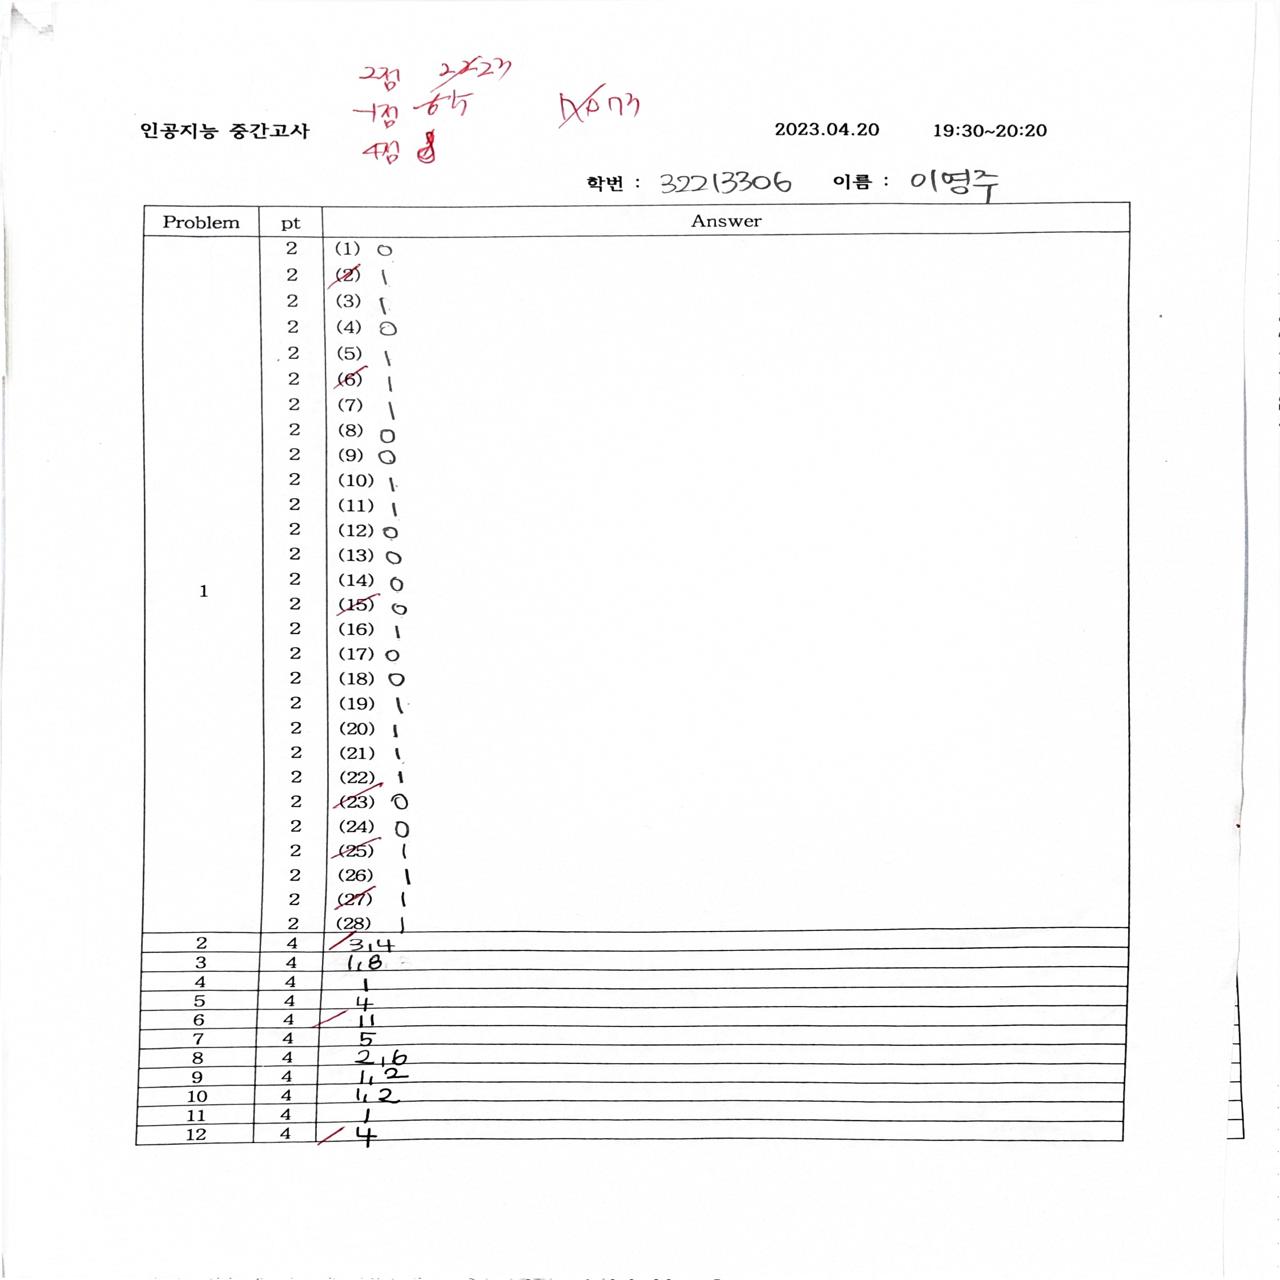 2점 23
-1점 5
73
인공지능 중간고사 2023.04.20 19:30~20:20
4점 8
학번 : 32213306 이름 : 이영주
Problem pt Answer
1
2 (1) 0
2 (2) 1
2 (3) 1
2 (4) 0
2 (5) 1
2 (6) 1
2 (7) 1
2 (8) 0
2 (9) 0
2 (10) 1
2 (11) 1
2 (12) 0
2 (13) 0
2 (14) 0
2 (15) 0
2 (16) 1
2 (17) 0
2 (18) 0
2 (19) 1
2 (20) 1
2 (21) 1
2 (22) 1
2 (23) 0
2 (24) 0
2 (25) 1
2 (26) 1
2 (27) 1
2 (28) 1
2 4 3,4
3 4 1,8
4 4 1
5 4 4
6 4 11
7 4 5
8 4 2,6
9 4 1,2
10 4 1,2
11 4 1
12 4 4